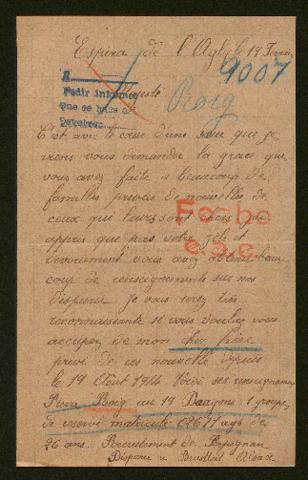 Espira de l'Agly le 19 Fevrier
9007
R
Pedir informes
que se hace de
Majesté
Roig
C'est avec le cœur d'une sœur que je
viens vous demander la grace que
vous avez faite a beaucoup de
familles privées de nouvelles de
ceux qui leurs sont chers
appris que par votre zèle et
devouement vous avez
coup de renseignements sur nos
disparus. Je vous serez très
reconnaissante si vous voulez vous
occupez de mon cher frère
privé de ces nouvelle depuis
le 19 Aout 1914 Voici ses renseignements
Pierre Roig au 19 Dragons 1 groupe
de reserve matricule 02611 agé de
26 ans. Recrutement de Perpignan
Disparu a Alsace
Fecho
c.s.c.